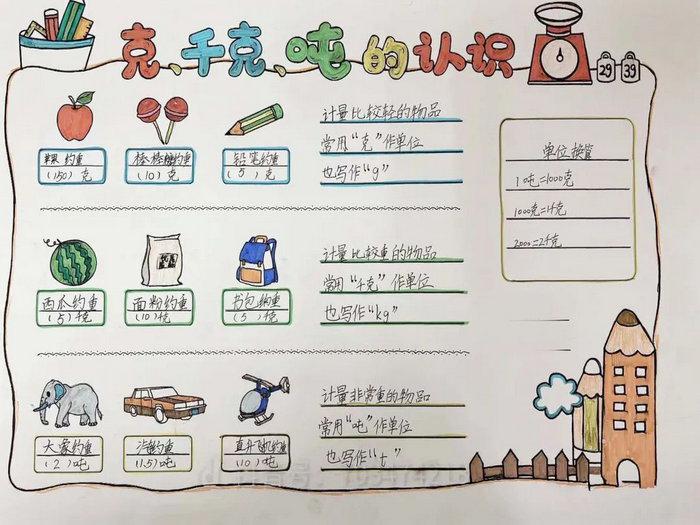 克、千克、吨的认识
29 39
苹果约重
(150)克
棒棒糖约重
(10)克
铅笔约重
(5)克
计量比较轻的物品
常用"克"作单位
也写作"g"
单位换算
1吨=1000克
1000克=1千克
2000=2千克
西瓜约重
(5)千克
面粉约重
(10)千克
书包约重
(5)千克
计量比较重的物品
常用"千克"作单位
也写作"kg"
大象约重
(2)吨
汽车约重
(1.5)吨
直升飞机约重
(10)吨
计量非常重的物品
常用"吨"作单位
也写作"t"